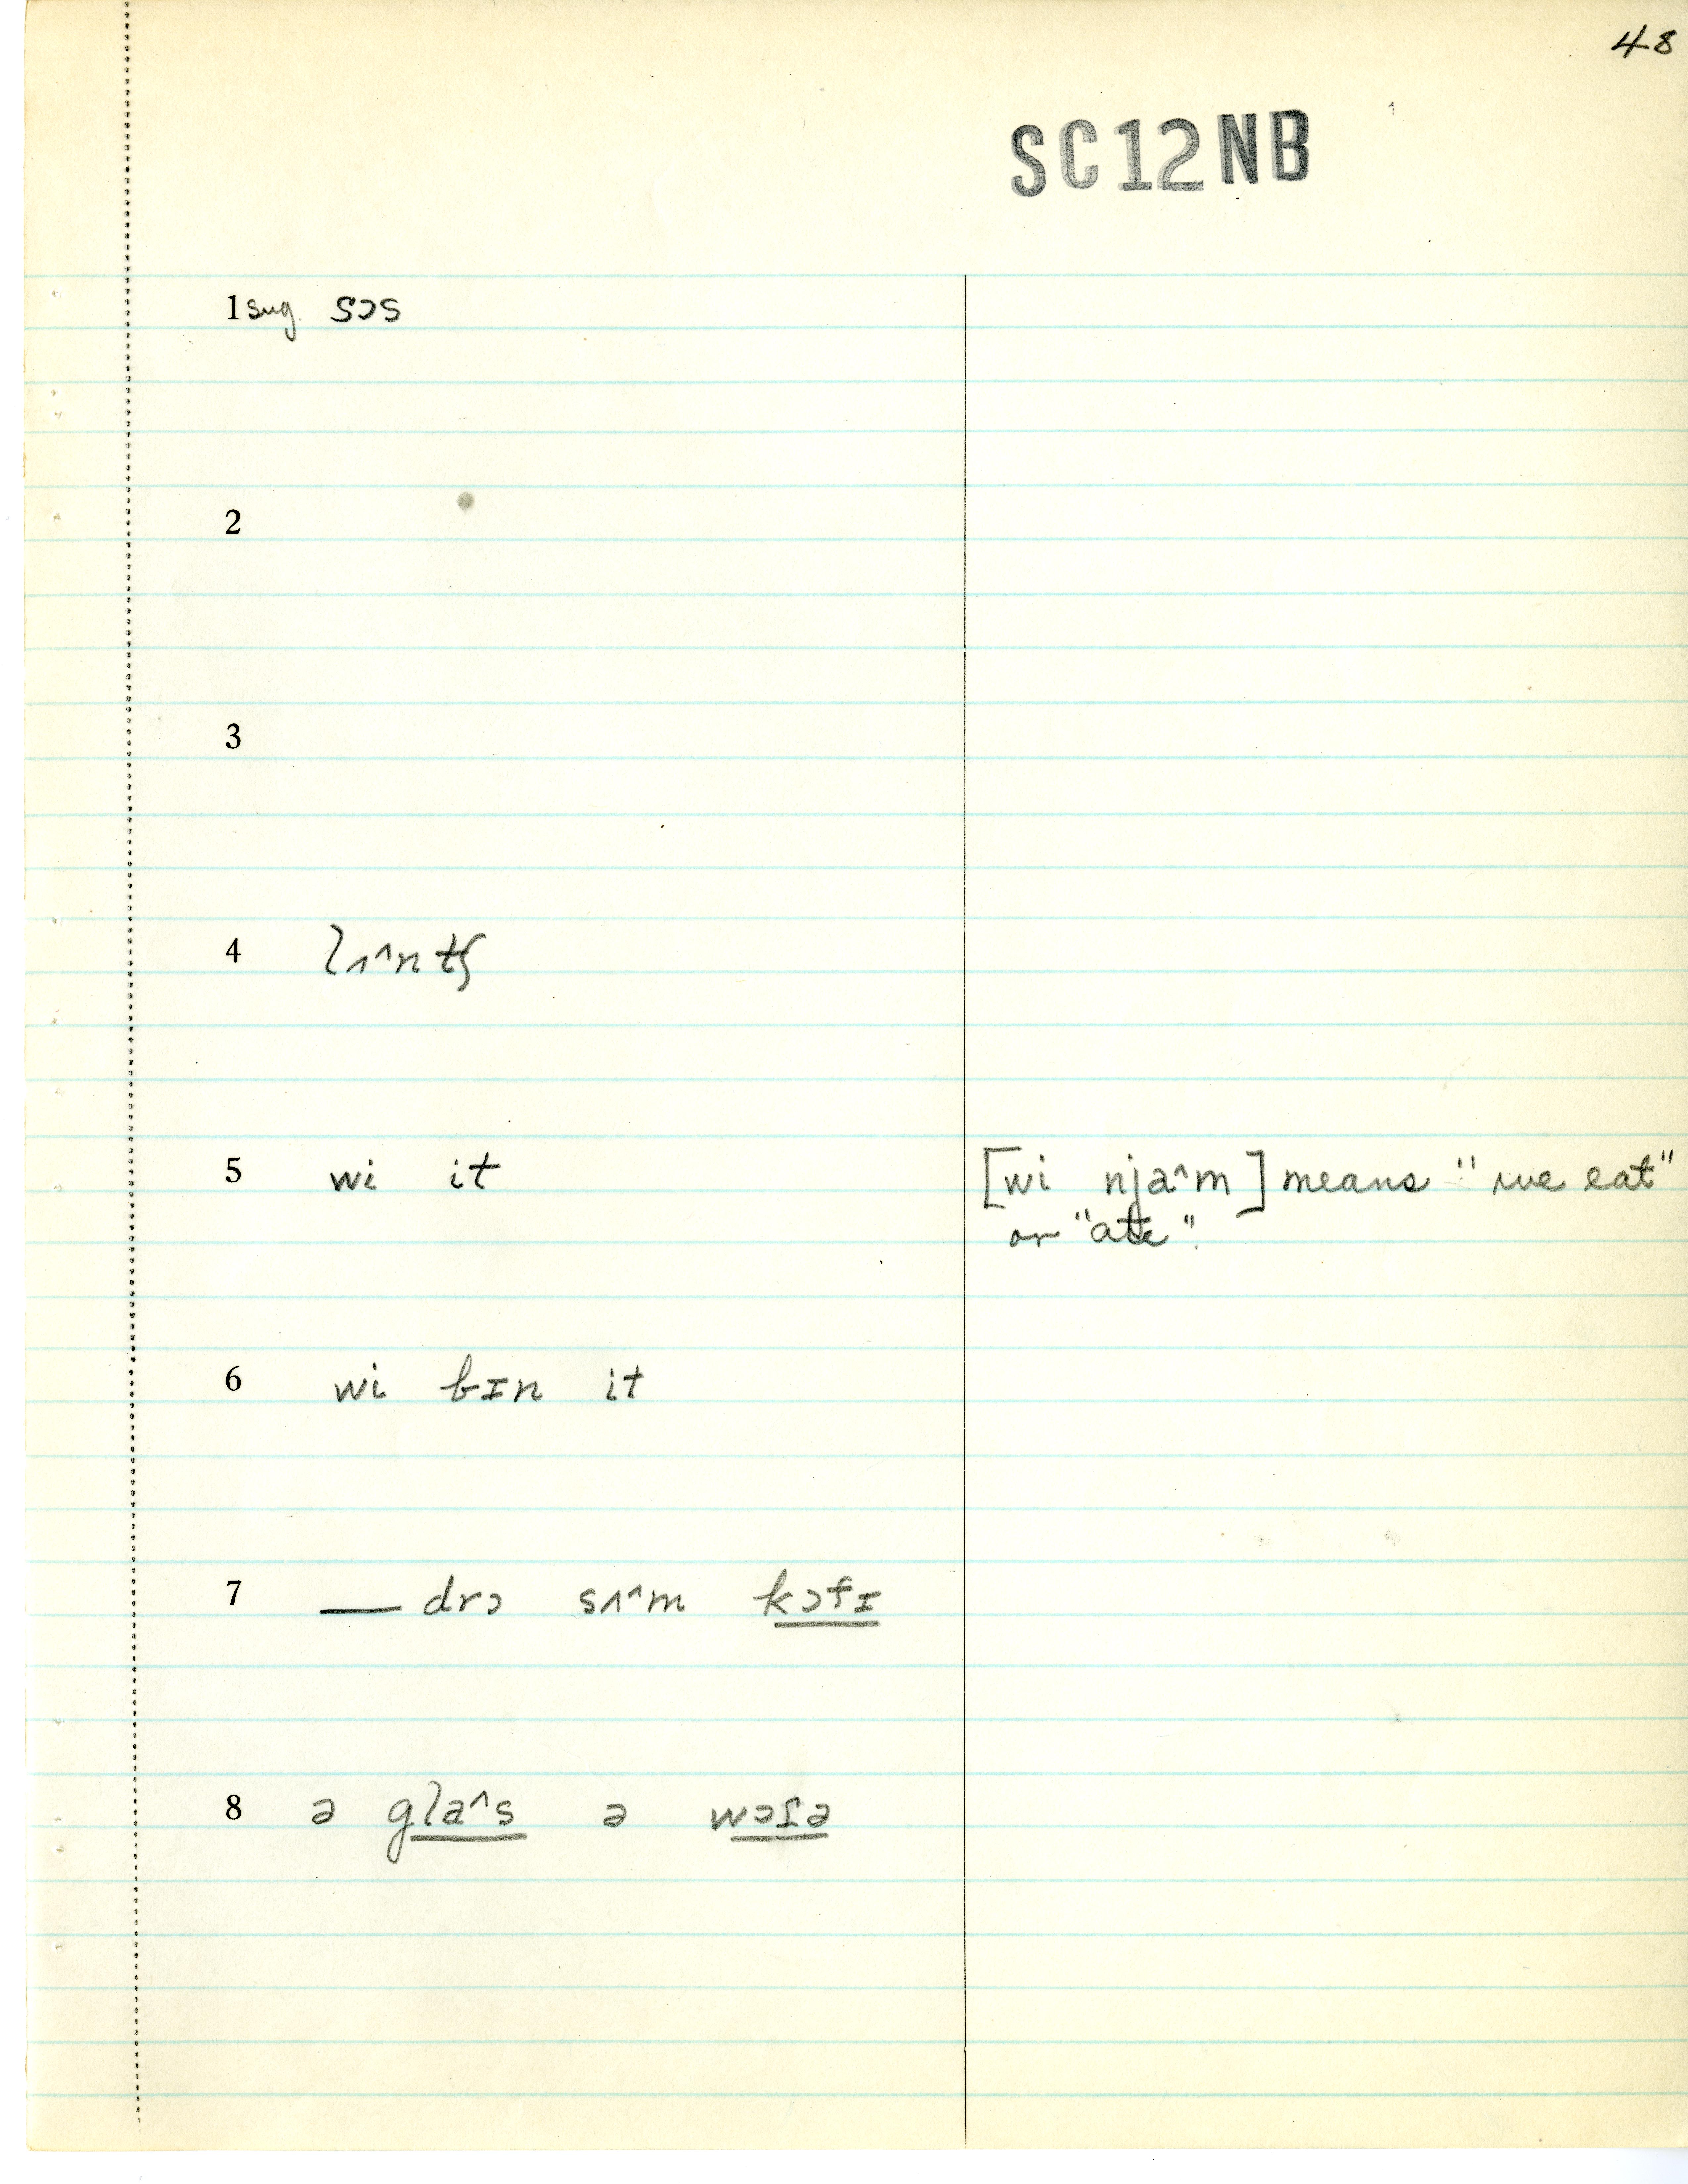 48
SC12NB
1 sug. sɔs
2
3
4 lʌ^ntʃ
5 wi it [wi nja^m] means "we eat"
or "ate".
6 wi bɪn it
7 — drɔ sʌ^m kɔfɪ
8 ə gla^s ə wɔɾə